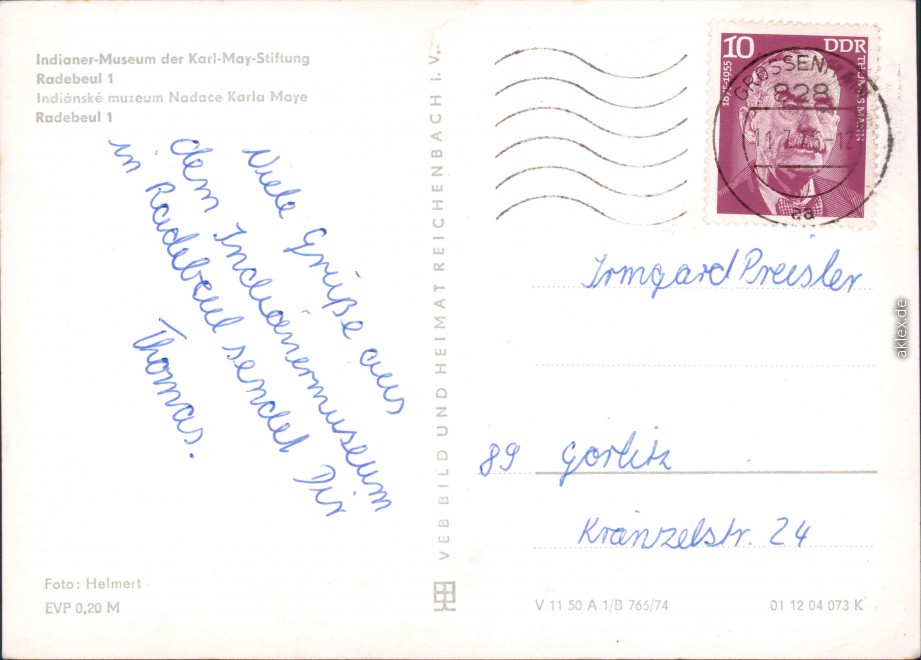 Indianer-Museum der Karl-May-Stiftung
Radebeul 1
Indiánské muzeum Nadace Karla Maye
Radebeul 1
Viele Grüße aus
dem Indianermuseum
in Radebeul sendet Dir
Thomas.
Foto: Helmert
EVP 0,20 M
VEB BILD UND HEIMAT REICHENBACH i. V.
10 DDR
1875-1955 THOMAS MANN
GROSSENHAIN
828
aa
Irmgard Preisler
89 Görlitz
Kränzelstr. 24
V 11 50 A 1/B 766/74
01 12 04 073 K
aklex.de